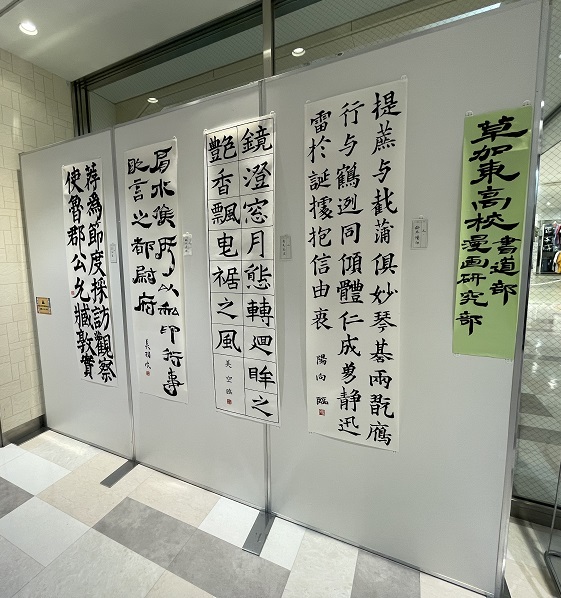 草加東高校
書道部
漫画研究部
提蔗与截蒲俱妙琴碁兩翫鴈
行与鶴迾同傾體仁成勇静迅
雷於誕據抱信由衷
陽向臨
鏡澄窓月態轉廻眸之
艶香飄曳裾之風
美空臨
肩水候房以私印行事
敢言之都尉府
荐為節度採訪觀察
使魯郡公允臧敦實